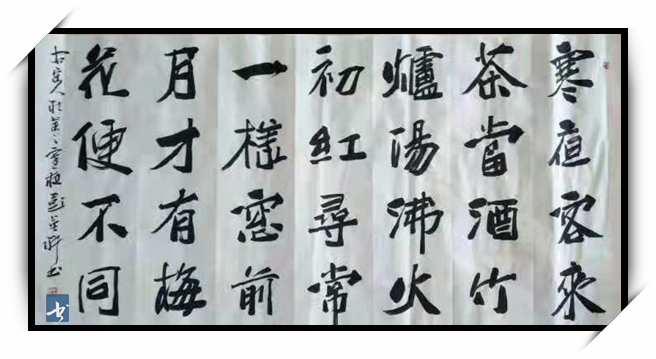 寒夜客來
茶當酒竹
爐湯沸火
初紅尋常
一樣窗前
月才有梅
花便不同